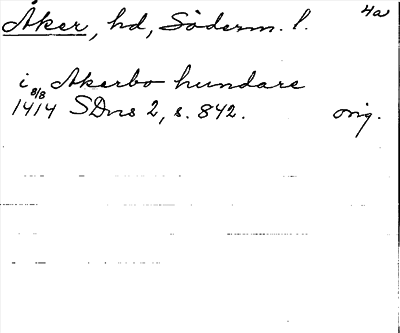 Åker, hd, Söderm. l. 4a
i Akerbo hundare
8/8
1414 SDns 2, s. 842. orig.